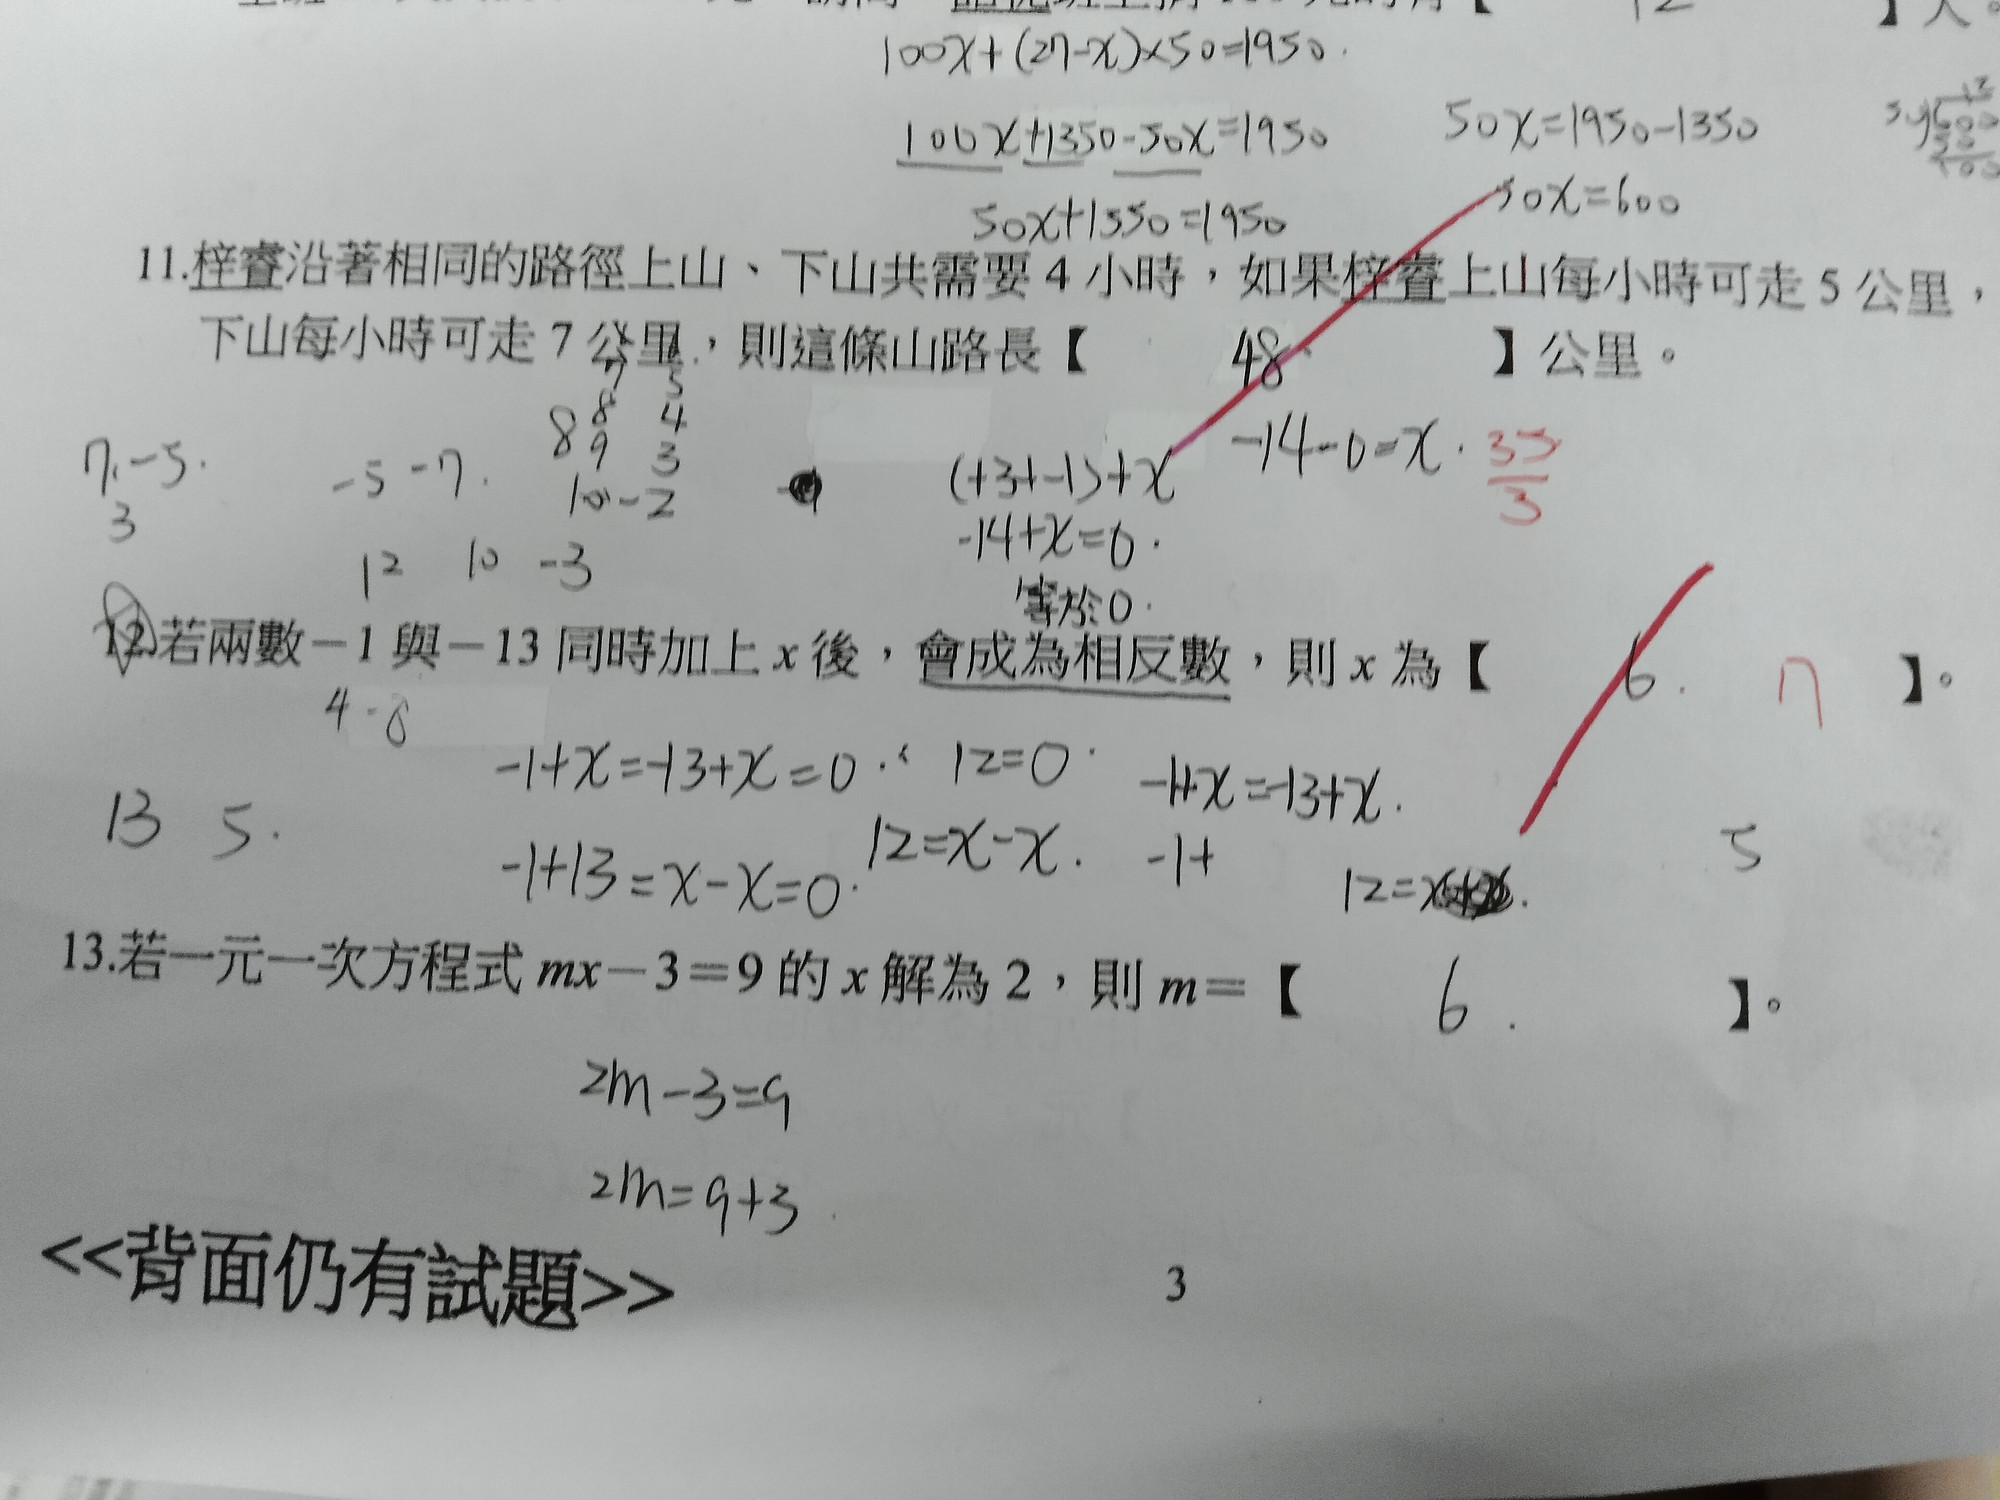 班上捐100元的有【 12 】人。
100x+(27-x)×50=1950.
100x+1350-50x=1950
50x=1950-1350
50x+1350=1950
50x=600
11.梓睿沿著相同的路徑上山、下山共需要4小時，如果梓睿上山每小時可走5公里，
下山每小時可走7公里，則這條山路長【 48 】公里。
7 5
8 8 4
9 3
10-2
7.-5.
3
-5-7.
12 10 -3
(+3+-1)+x
-14-0=x.
35/3
-14+x=0.
等於0.
12.若兩數－1與－13同時加上x後，會成為相反數，則x為【 6. 7 】。
4-8
-1+x=-13+x=0.
12=0.
-1+x=-13+x.
13 5.
-1+13=x-x=0.
12=x-x.
-1+
12=x
5
13.若一元一次方程式mx－3＝9的x解為2，則m＝【 6. 】。
2m-3=9
2m=9+3
<<背面仍有試題>>
3